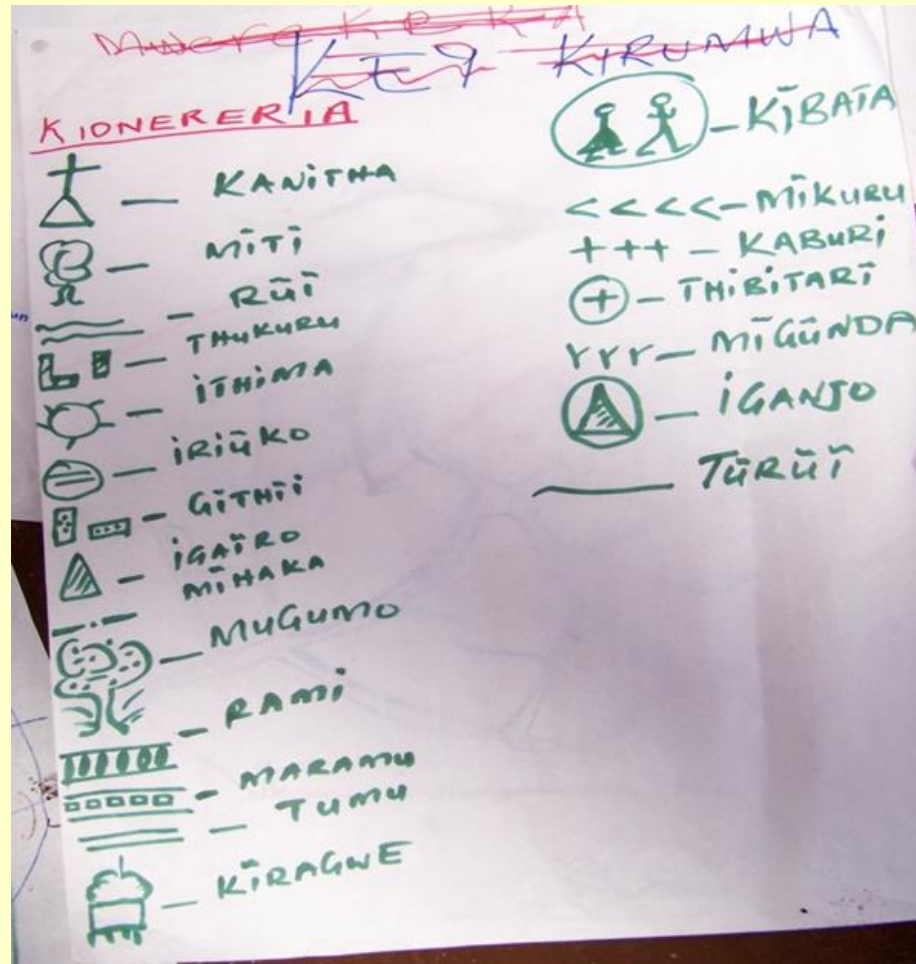 KEY KIRUMWA
KIONERERIA
— KANITHA
— MĪTĪ
— RŪĪ
— THUKURU
— ITHIMA
— IRIŪKO
— GĪTHII
— IGAĪRO
MĪHAKA
— MUGUMO
— RAMI
— MARAMU
— TUMU
— KĪRAGWE
— KĪBATA
<<<< — MĪKURU
+++ — KABURI
+ — THIBITARĪ
rrr — MĪGŪNDA
— IGANJO
— TŪRŪĪ